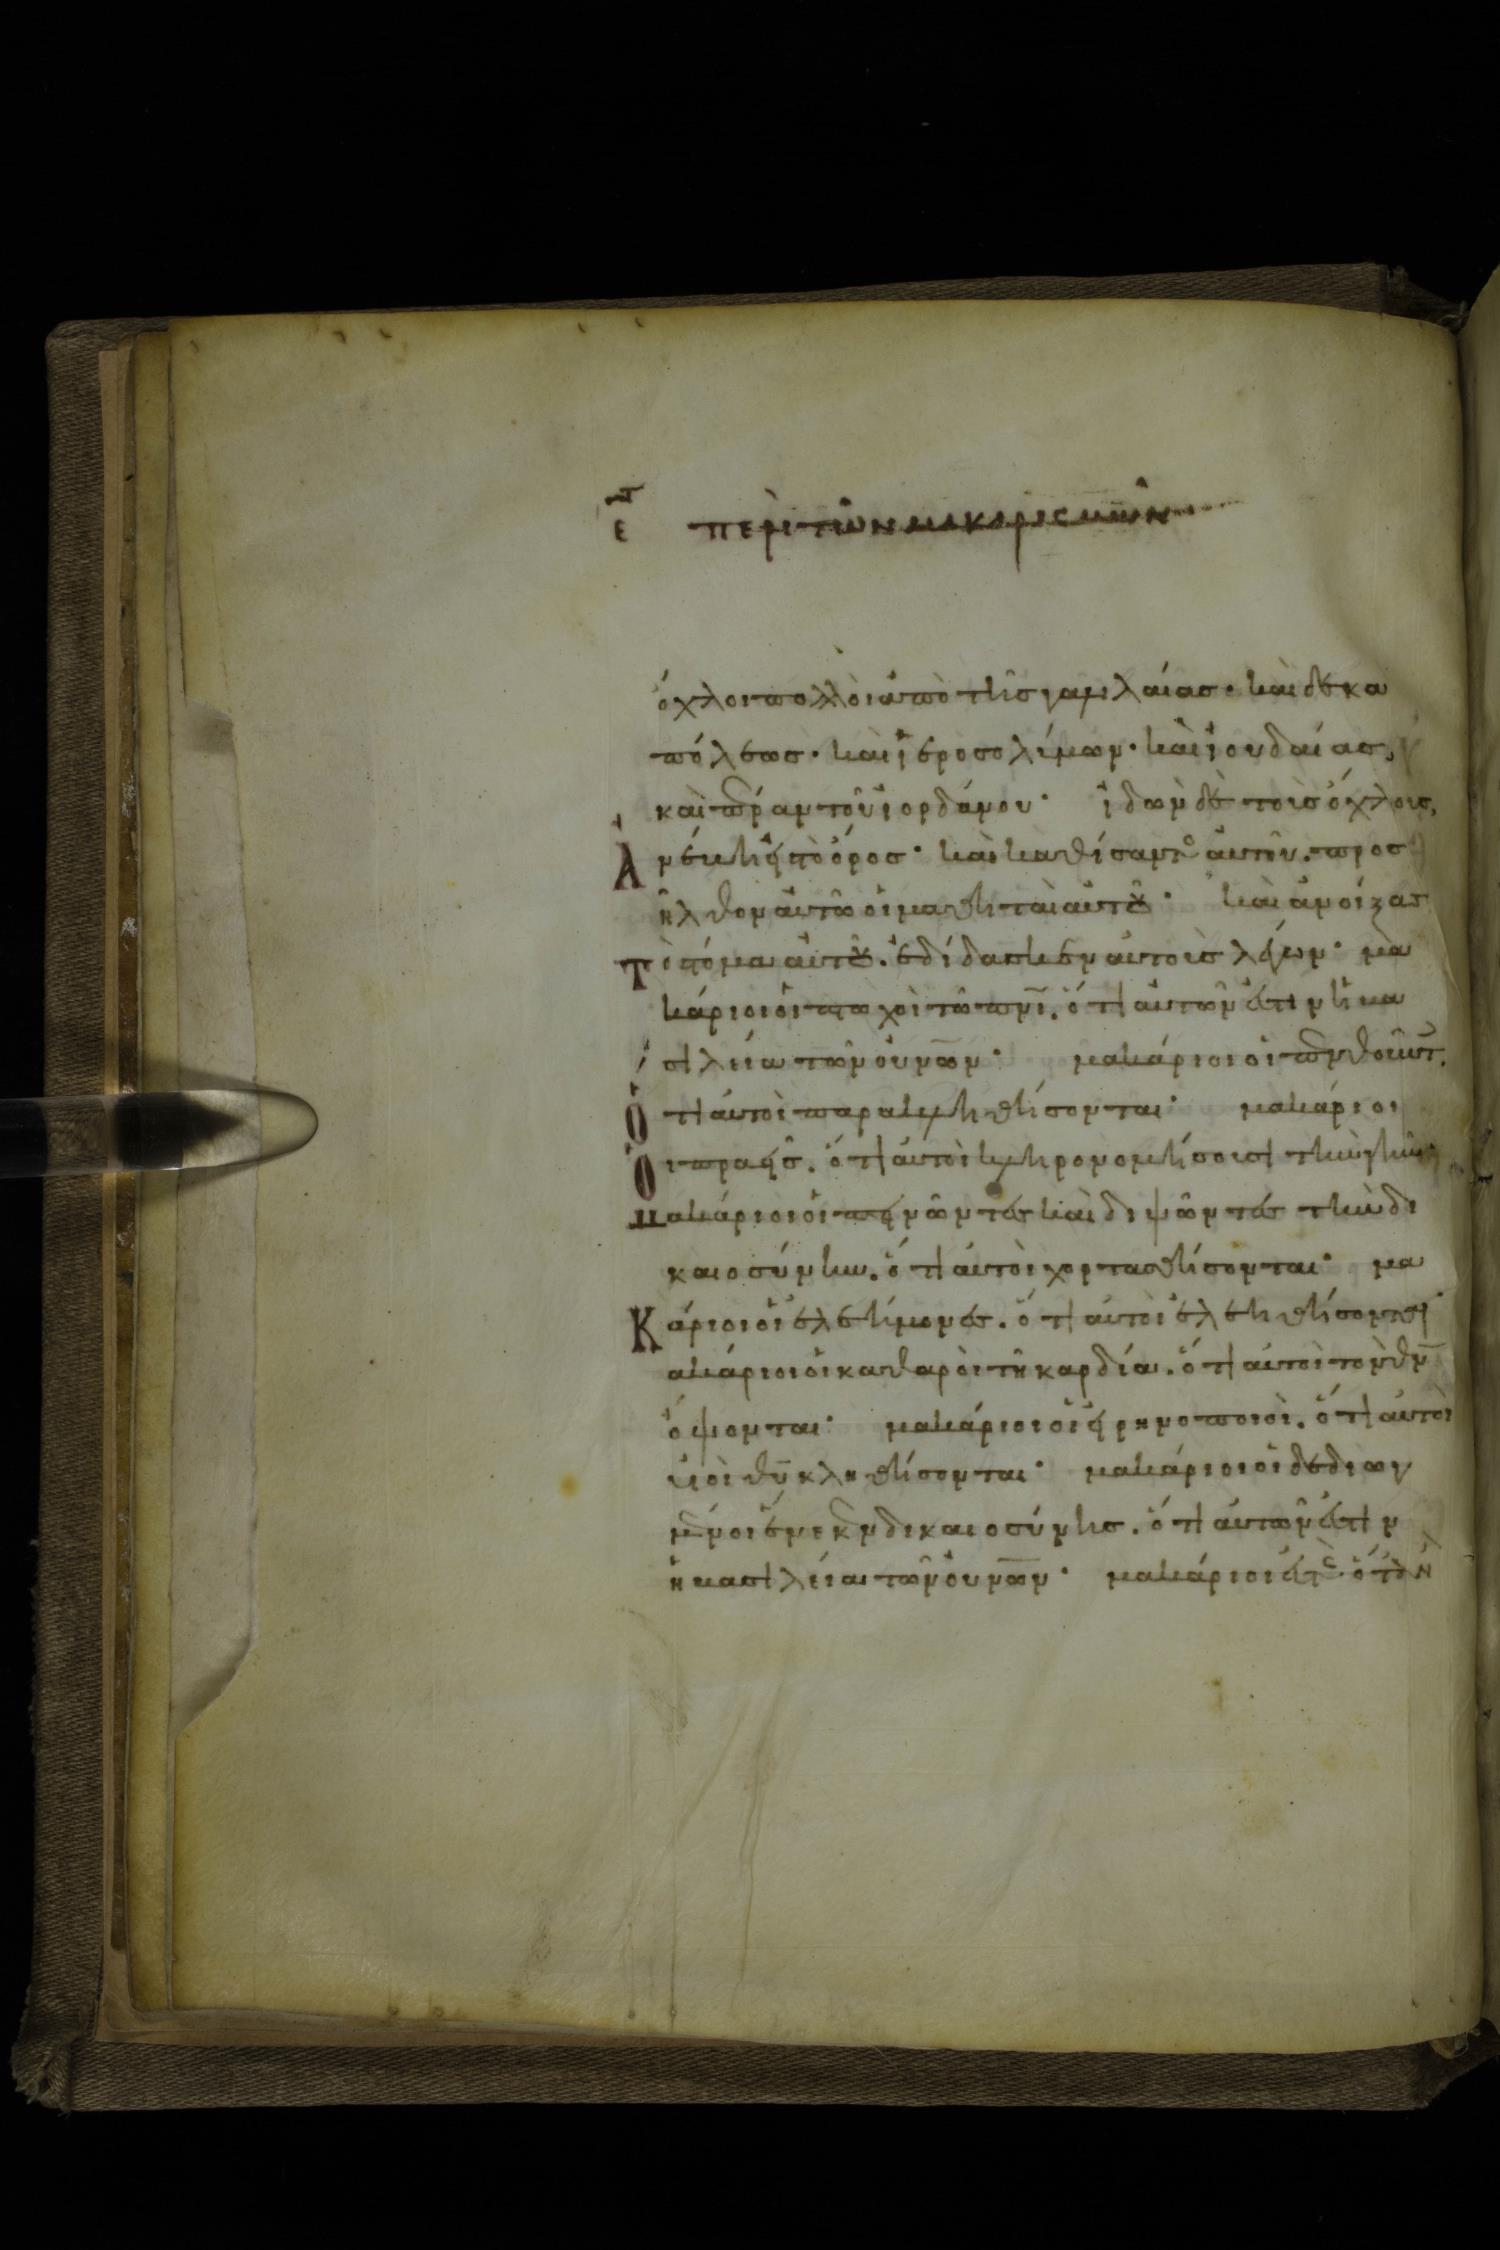 ε περὶ τῶν μακαρισμῶν
ὄχλοι πολλοὶ ἀπὸ τῆς γαλιλαίας· καὶ δεκα
πόλεως· καὶ ἱεροσολύμων· καὶ ἰουδαίας,
καὶ πέραν τοῦ ἰορδάνου· ἰδὼν δὲ τοὺς ὄχλους,
Ἀνέβη εἰς τὸ ὄρος· καὶ καθίσαντος αὐτοῦ. προσ
ῆλθον αὐτῶ οἱ μαθηταὶ αὐτοῦ· καὶ ἀνοίξας
Τὸ στόμα αὐτοῦ. ἐδίδασκεν αὐτοὺς λέγων· μα
κάριοι οἱ πτωχοὶ τῶ πνι. ὅτι αὐτῶν ἐστιν ἡ βα
σιλεία τῶν οὐνῶν· μακάριοι οἱ πενθοῦντ.
Ὅτι αὐτοὶ παρακληθήσονται· μακάριοι
Οἱ πραεῖς. ὅτι αὐτοὶ κληρονομήσουσι τὴν γῆν·
Μακάριοι οἱ πεινῶντες καὶ διψῶντες τὴν δι
καιοσύνην. ὅτι αὐτοὶ χορτασθήσονται· μα
Κάριοι οἱ ἐλεήμονες. ὅτι αὐτοὶ ἐλεηθήσονται·
ακάριοι οἱ καθαροὶ τῆ καρδία. ὅτι αὐτοὶ τὸν θν
ὄψονται· μακάριοι οἱ εἰρηνοποιοὶ. ὅτι αὐτοὶ
υἱοὶ θυ κληθήσονται· μακάριοι οἱ δεδιωγ
μένοι ἕνεκεν δικαιοσύνης. ὅτι αὐτῶν ἐστιν
ἡ βασιλεία τῶν οὐνῶν· μακάριοι ἐστὲ. ὅταν